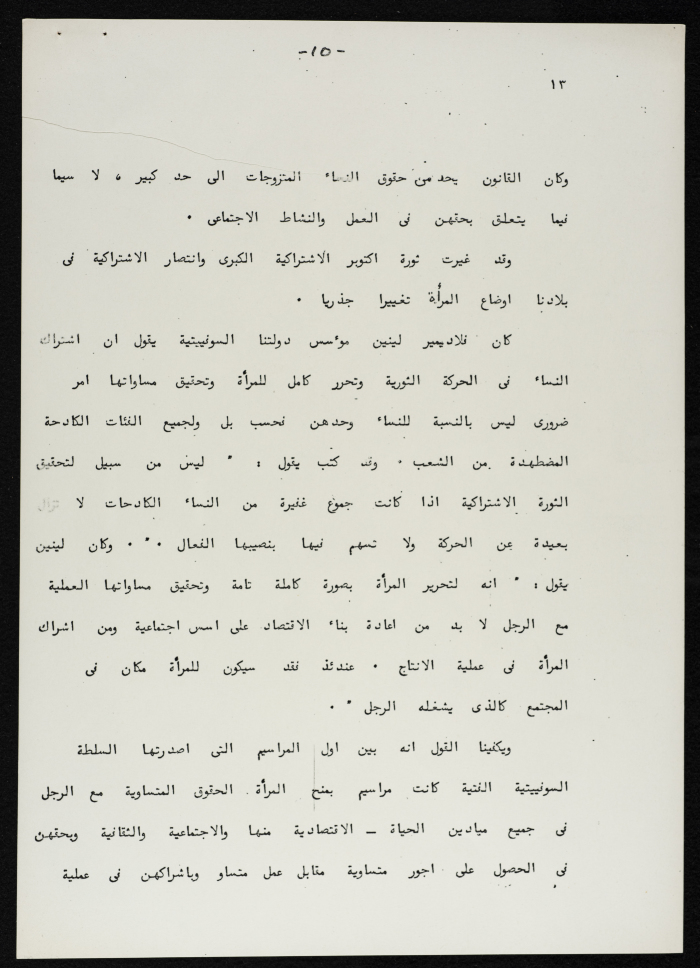 -10-
١٣
وكان القانون يحد من حقوق النساء المتزوجات الى حد كبير ، لا سيما
فيما يتعلق بحقهن فى العمل والنشاط الاجتماعى .
وقد غيرت ثورة اكتوبر الاشتراكية الكبرى وانتصار الاشتراكية فى
بلادنا اوضاع المرأة تغييرا جذريا .
كان فلاديمير لينين موءسس دولتنا السوفييتية يقول ان اشتراك
النساء فى الحركة الثورية وتحرر كامل للمرأة وتحقيق مساواتها امر
ضرورى ليس بالنسبة للنساء وحدهن فحسب بل ولجميع الفئات الكادحة
المضطهدة من الشعب . وقد كتب يقول : " ليس من سبيل لتحقيق
الثورة الاشتراكية اذا كانت جموع غفيرة من النساء الكادحات لا تزال
بعيدة عن الحركة ولا تسهم فيها بنصيبها الفعال . " . وكان لينين
يقول : " انه لتحرير المرأة بصورة كاملة تامة وتحقيق مساواتها العملية
مع الرجل لا بد من اعادة بناء الاقتصاد على اسس اجتماعية ومن اشراك
المرأة فى عملية الانتاج . عندئذ فقد سيكون للمرأة مكان فى
المجتمع كالذى يشغله الرجل " .
ويكفينا القول انه بين اول المراسيم التى اصدرتها السلطة
السوفييتية الفتية كانت مراسيم بمنح المرأة الحقوق المتساوية مع الرجل
فى جميع ميادين الحياة ــ الاقتصادية منها والاجتماعية والثقافية وبحقهن
فى الحصول على اجور متساوية مقابل عمل متساو وباشراكهن فى عملية